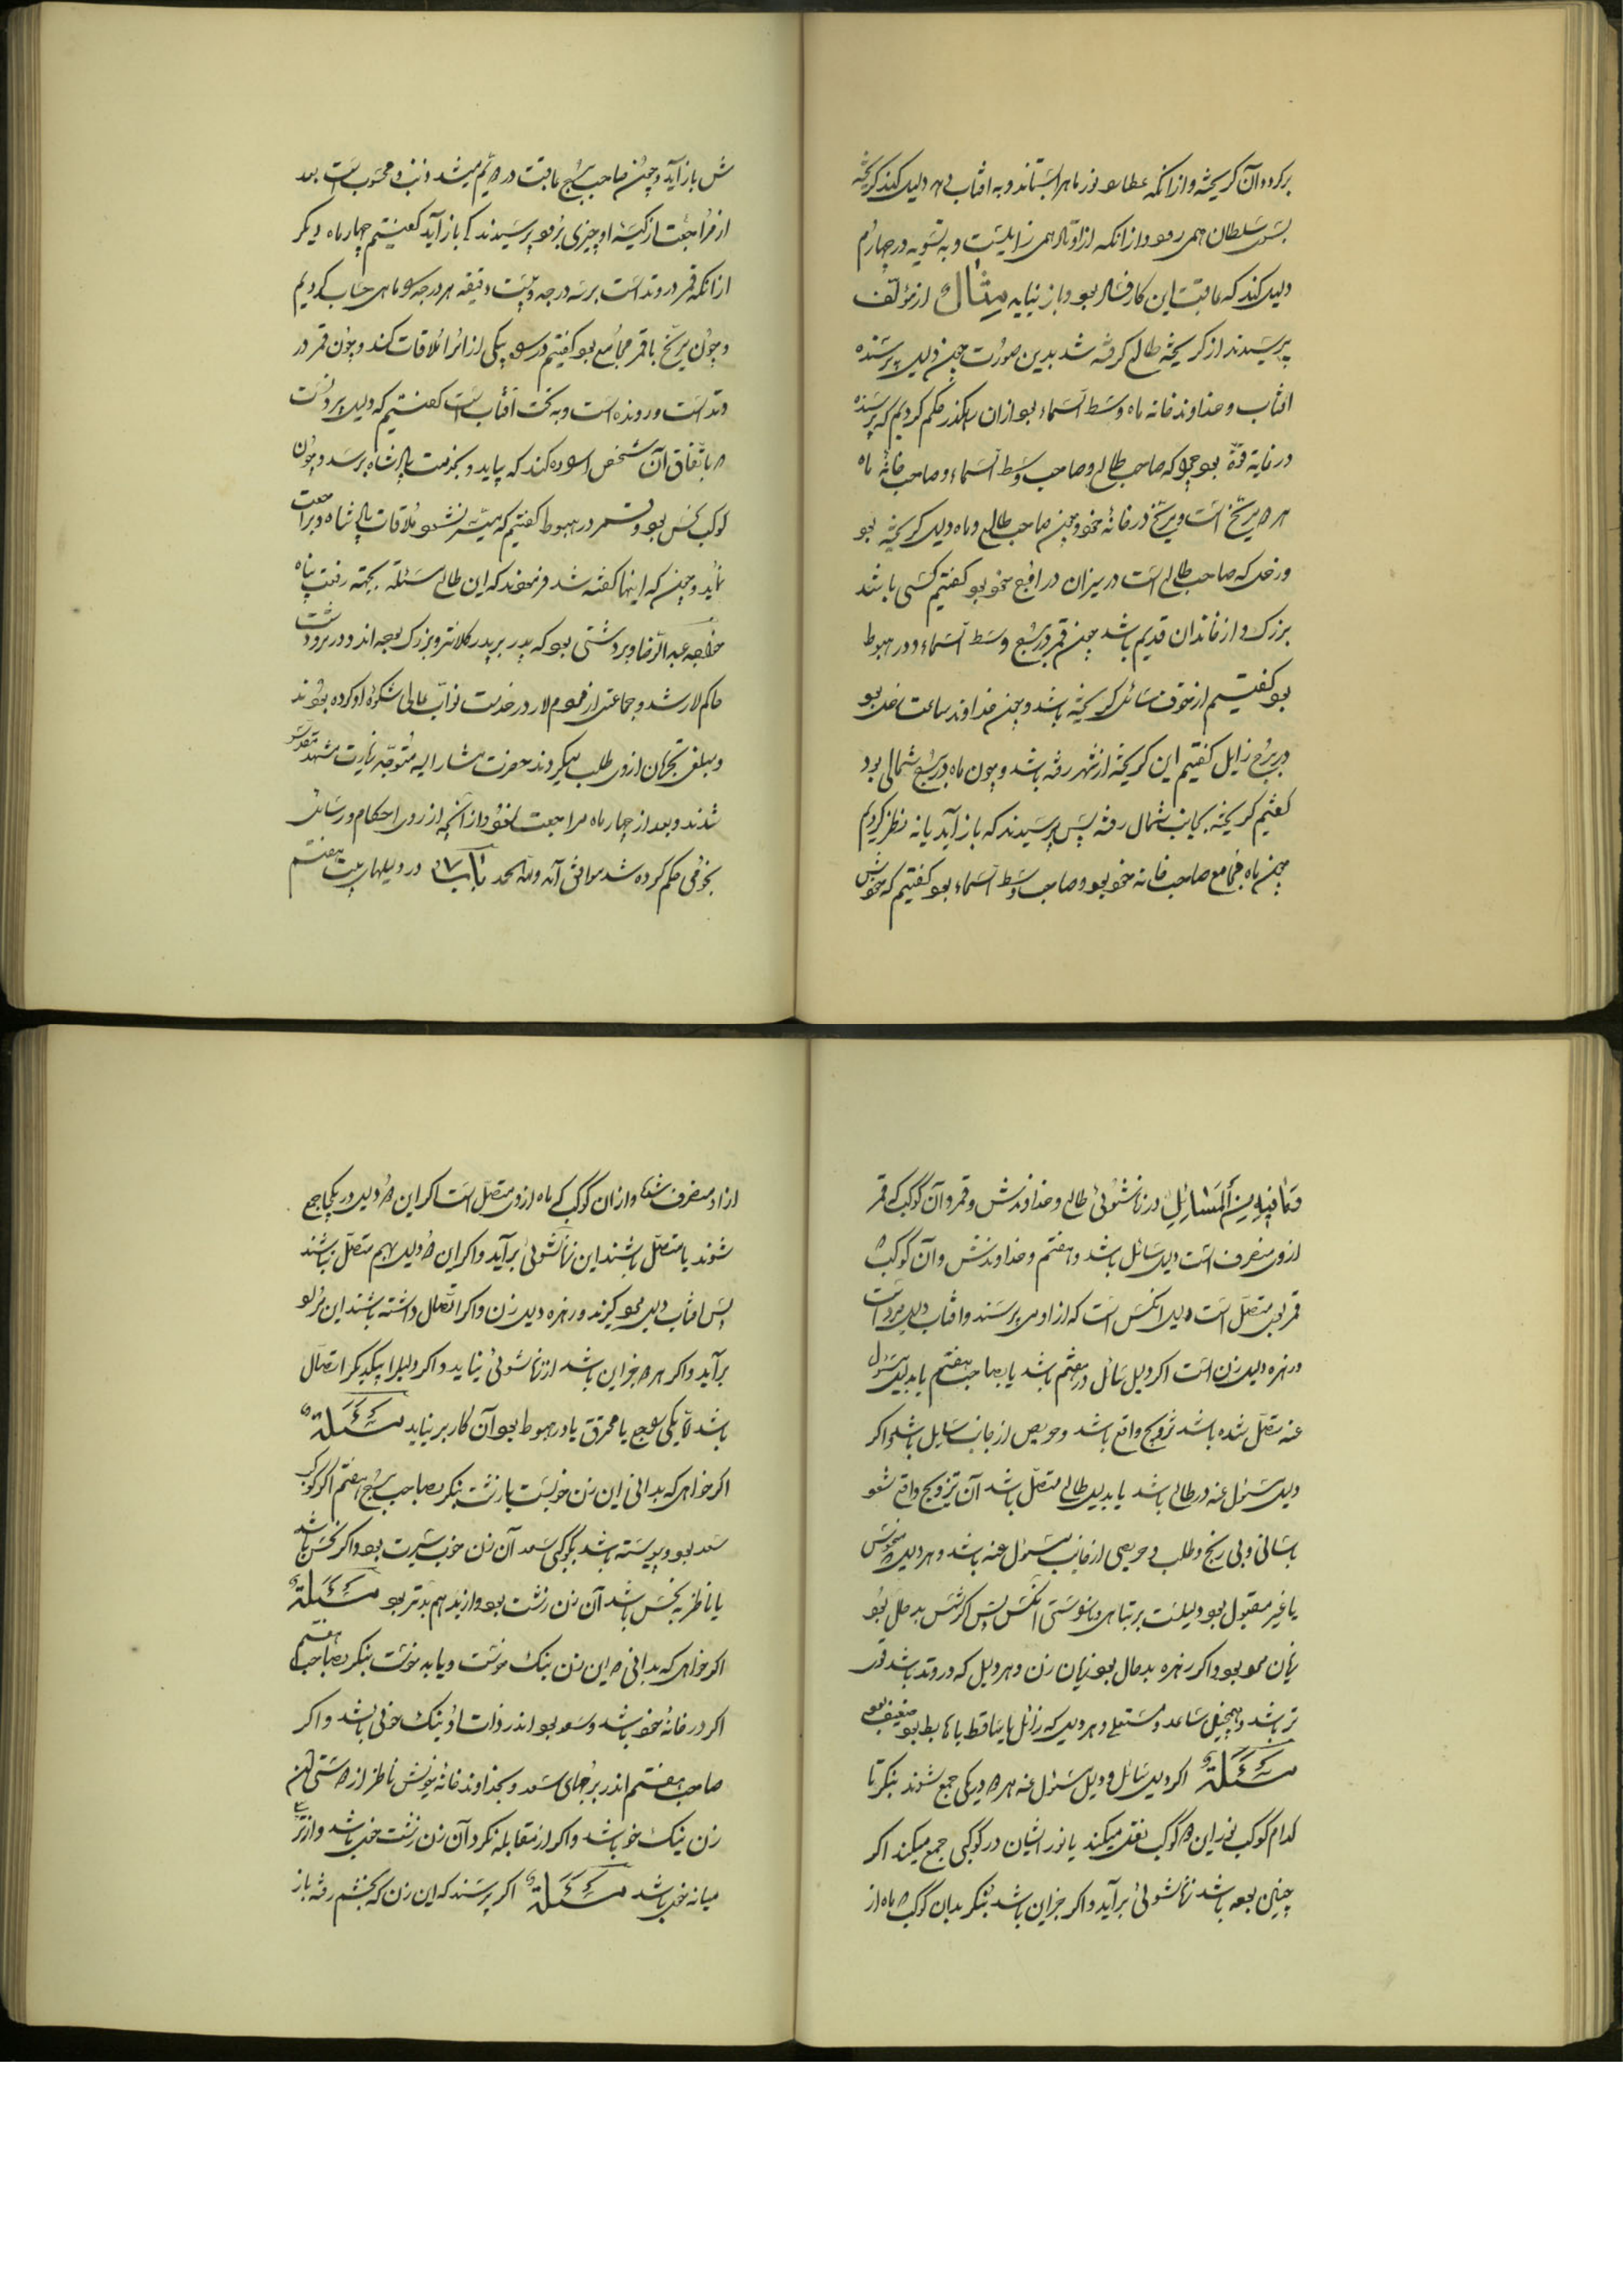 برکردد آن گریخته و ازانکه عطارد نور ماه را بستاند و به افتاب دهد دلیل کند گریخته
بسوی سلطان همی رود و ازانکه از اوتاد همی زایلست و به تسویه در چهارم
دلیل کند که عاقبت این کار فساد بود و باز نیاید مثال از مؤلف
پرسیدند از گریخته طالع گرفته شد بدین صورت چون دلیل پرسنده
افتاب و خداوند خانه ماه وسط السماء بود ازان رهگذر حکم کردیم که پرسنده
در غایة قوّة بود چو که صاحب طالع و صاحب وسط السماء و صاحب خانهٔ ماه
هر دو مریخ است و مریخ در خانهٔ خود و چون صاحب طالع و ماه دلیل گریخته بود
و زحل که صاحب طالع است در میزان در اوج خود بود گفتیم کسی باشد
بزرک و از خاندان قدیم باشد چون قمر در برج وسط السماء و در هبوط
بود گفتیم از خوف سائل گریخته باشد و چون خداوند ساعت زحل بود
در برج زایل گفتیم این گریخته از شهر رفته باشد و چون ماه در برج شمالی بود
گفتیم گریخته بجانب شمال رفته پس پرسیدند که باز آید یا نه نظر کردیم
چون ماه مجامع صاحب خانه خود بود و صاحب وسط السماء بود گفتیم که خودش
ش باز آید و چون صاحب برج عاقبت در دویم میشد و ذنب محسوب است بعد
از مراجعت از کیسهٔ او چیزی برود پرسیدند کی باز آید گفتیم چهار ماه دیگر
ازانکه قمر در وتد است بر سه درجه و بیست دقیقه هر درجه را ماهی حساب کردیم
و چون مریخ با قمر مجامع بود گفتیم در راه یکی از امرا ملاقات کند و چون قمر در
وتد است و رونده است و به تحت افتاب است گفتیم که دلیل بر دانست
باتفاق آن شخص اراده کند که بیاید و بخدمت پادشاه برسد و چون
کوکب نحس بود و قمر در هبوط گفتیم که میسر نشود ملاقات پادشاه و مراجعت
نماید و چون که اینها گفته شد فرمودند که این طالع مسئلة بجهته رفعت پناه
خواجه عبد الرضا ویردشتی بود که پدر بر پدر کلانتر و بزرک بوده اند و در ویردشت
حاکم لار شد و جماعتی از مردم لار در خدمت نواب عالی شکوهٔ او کرده بودند
و مبلغی تجرمان ازوی طلب میکردند حضرت مشار الیه متوجه زیارت مشهد مقدس
شدند و بعد از چهار ماه مراجعت نمود و از آنچه از روی احکام و رسائل
نجومی حکم کرده شد موافق آمد وللّه الحمد باب ۱۷ در دلیلهای بیت هفتم
و مٰا فیهِ مِنَ الْمَسٰائِلِ در زناشوئی طالع و خداوندش و قمر و آن کوکب که قمر
ازوی منصرف است دلیل سائل باشد و هفتم و خداوندش و آن کوکب که
قمر بوی متصل است دلیل انکس است که از او می پرسند و افتاب دلیل مرد است
و زهره دلیل زن است اگر دلیل سائل در هفتم باشد یا بصاحب هفتم یا بدلیل مسئول
عنه متصل شده باشد تزویج واقع باشد و حریص از جانب سایل باشد و اگر
دلیل مسئول عنه در طالع باشد یا بدلیل طالع متصل باشد آن تزویج واقع شود
باسانی و بی رنج و طلب و حریصی از جانب مسئول عنه باشد و هر دلیل که منحوس
یا غیر مقبول بود دلیلست بر تباهی و ناخوشی انکس پس اگر شمس بد حال بود
زیان مرد بود و اگر زهره بد حال بود زیان زن و هر دلیل که در وتد باشد قوی
تر باشد و همچنین صاعد و مستعلی و هر دلیل که زائل یا ساقط یا هابط بود ضعیف بود
مسئلة اگر دلیل سائل و دلیل مسئول عنه هر دو در یکی جمع شوند بنگر تا
کدام کوکب نور این دو کوکب نقل میکند یا نور ایشان در کوکبی جمع میکند اگر
چنین بود باشد زناشوئی برآید و اگر جز این باشد بنگر بدان کوکب که ماه از
از او منصرف شده و ازان کوکب که ماه ازو متصل است اگر این دو دلیل در یکجا جمع
شوند یا متصل باشند این زناشوئی برآید و اگر این دو دلیل بهم متصل نباشند
پس افتاب دلیل مرد گیرند و زهره دلیل زن و اگر اتصال داشته باشند این مراد
برآید و اگر هر دو جز این باشد از زناشوئی نیاید و اگر دلیلرا بیکدیگر اتصال
باشد لا یکی راجع یا محترق یا در هبوط بود آن کار برنیاید مسئلة
اگر خواهی که بدانی این زن خوبست یا زشت بنگر بصاحب برج هفتم اگر کوکب
سعد بود و پیوسته باشد بکوکبی سعد آن زن خوب سیرت بود و اگر نحس باشد
یا ناظر به نحس باشد آن زن زشت بود و از بد هم بدتر بود مسئلة
اگر خواهی که بدانی که این زن نیک خوست و یا بد خوست بنگر بصاحب هفتم
اگر در خانهٔ خود باشد و سعد بود اندر ذات او نیک خوئی باشد و اگر
صاحب هفتم اندر برجهای سعد و بخداوند خانهٔ خویش ناظر از دوستی این
زن نیک خو باشد و اگر از مقابله نگرد آن زن زشت خوی باشد و از تربیع
میانه خوی باشد مسئلة اگر پرسند که این زن که بخشم رفته باز